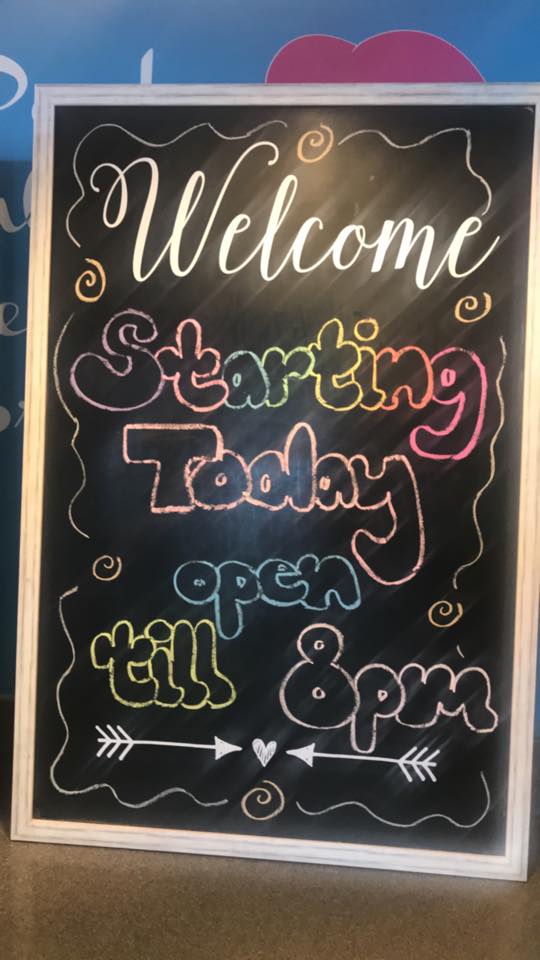 Welcome
Starting
Today
open
till 8pm